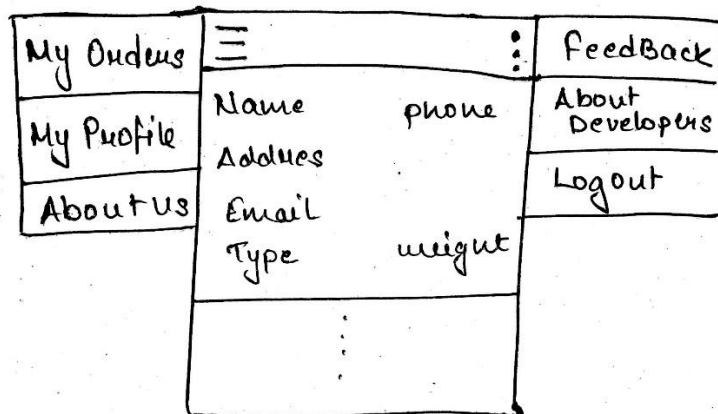 My Orders
My Profile
About Us
Name phone
Addres
Email
Type weight
FeedBack
About
Developers
Logout